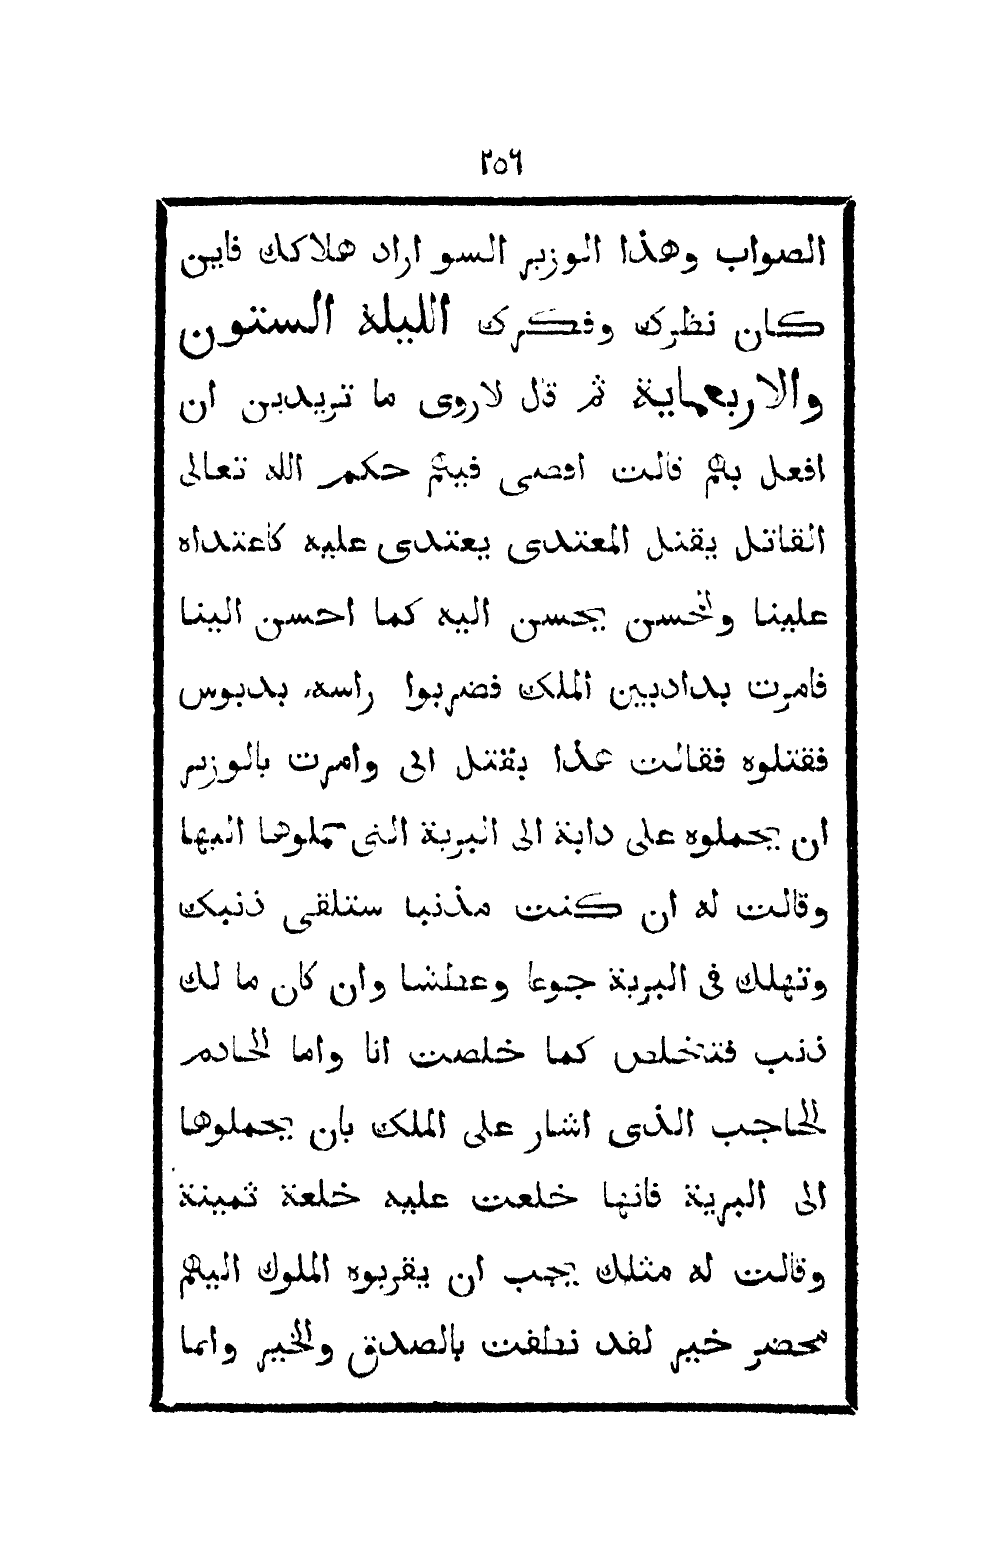 ٢٥٦
الصواب وهذا الوزير السو اراد هلاكك فاين
كان نظرك وفكرك الليلة الستون
والاربعماية ثم قال لاروى ما تريدين ان
افعل بهم قالت اقضى فيهم حكم الله تعالى
القاتل يقتل المعتدى يعتدى عليه كاعتداه
علينا والمحسن يحسن اليه كما احسن الينا
فامرت بدادبين الملك فضربوا راسه بدبوس
فقتلوه فقالت هذا بقتل ابى وامرت بالوزير
ان يحملوه على دابة الى البرية التى حملوها اليها
وقالت له ان كنت مذنبا ستلقى ذنبك
وتهلك فى البرية جوعا وعطشا وان كان ما لك
ذنب فتتخلص كما خلصت انا واما الخادم
الحاجب الذى اشار على الملك بان يحملوها
الى البرية فانها خلعت عليه خلعة ثمينة
وقالت له مثلك يجب ان يقربوه الملوك اليهم
محضر خير لقد نطقت بالصدق والخير وانما